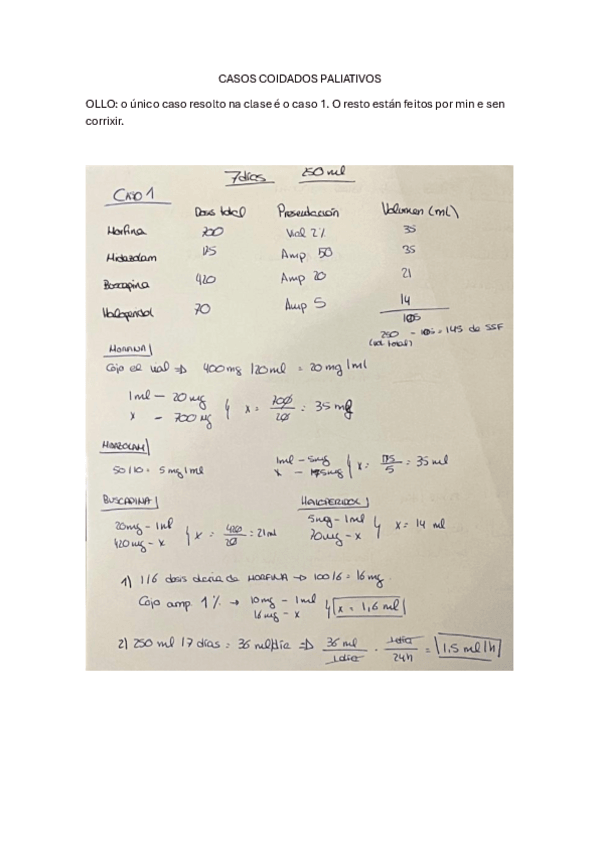 CASOS COIDADOS PALIATIVOS
OLLO: o único caso resolto na clase é o caso 1. O resto están feitos por min e sen
corrixir.
7 días 250 ml
CASO 1
Dosis total Presentación Volumen (mL)
Morfina 700 Vial 2% 35
Midazolam 175 Amp 50 35
Buscapina 420 Amp 20 21
Haloperidol 70 Amp 5 14
105
250 - 105 = 145 de SSF
(vol total)
MORFINA
Cojo el vial => 400mg /20ml = 20 mg/ml
1ml — 20 mg
x — 700 mg } x = 700/20 = 35 mg
MIDAZOLAM
50/10 = 5 mg/ml
1ml - 5mg
x - 175mg } x = 175/5 = 35 ml
BUSCAPINA HALOPERIDOL
20mg - 1ml
420mg - x } x = 420/20 = 21ml
5mg - 1ml
70mg - x } x = 14 ml
1) 1/6 dosis diaria de MORFINA → 100/6 = 16 mg.
Cojo amp. 1% → 10mg - 1ml
16mg - x } x = 1,6 ml
2) 250 ml / 7 días = 36 ml/día => 36 ml/1día · 1día/24h = 1,5 ml/h